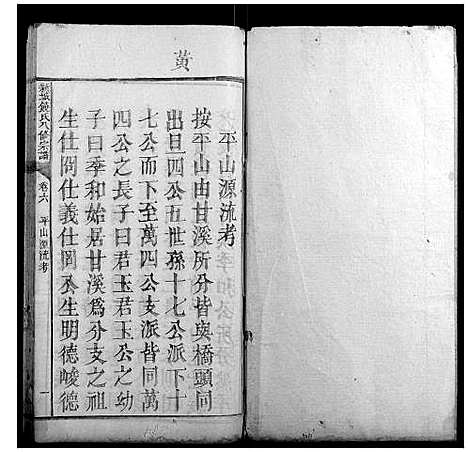 黃
平山源流考
按平山由甘溪所分皆與橋頭同
出旦四公五世孫十七公派下十
七公而下至萬四公支派皆同萬
四公之長子曰君玉公之幼
子曰季和始居甘溪爲分支之祖
生仕閔仕義仕岡公生明德峻德
氏八修宗譜
卷六
平山源流考
一